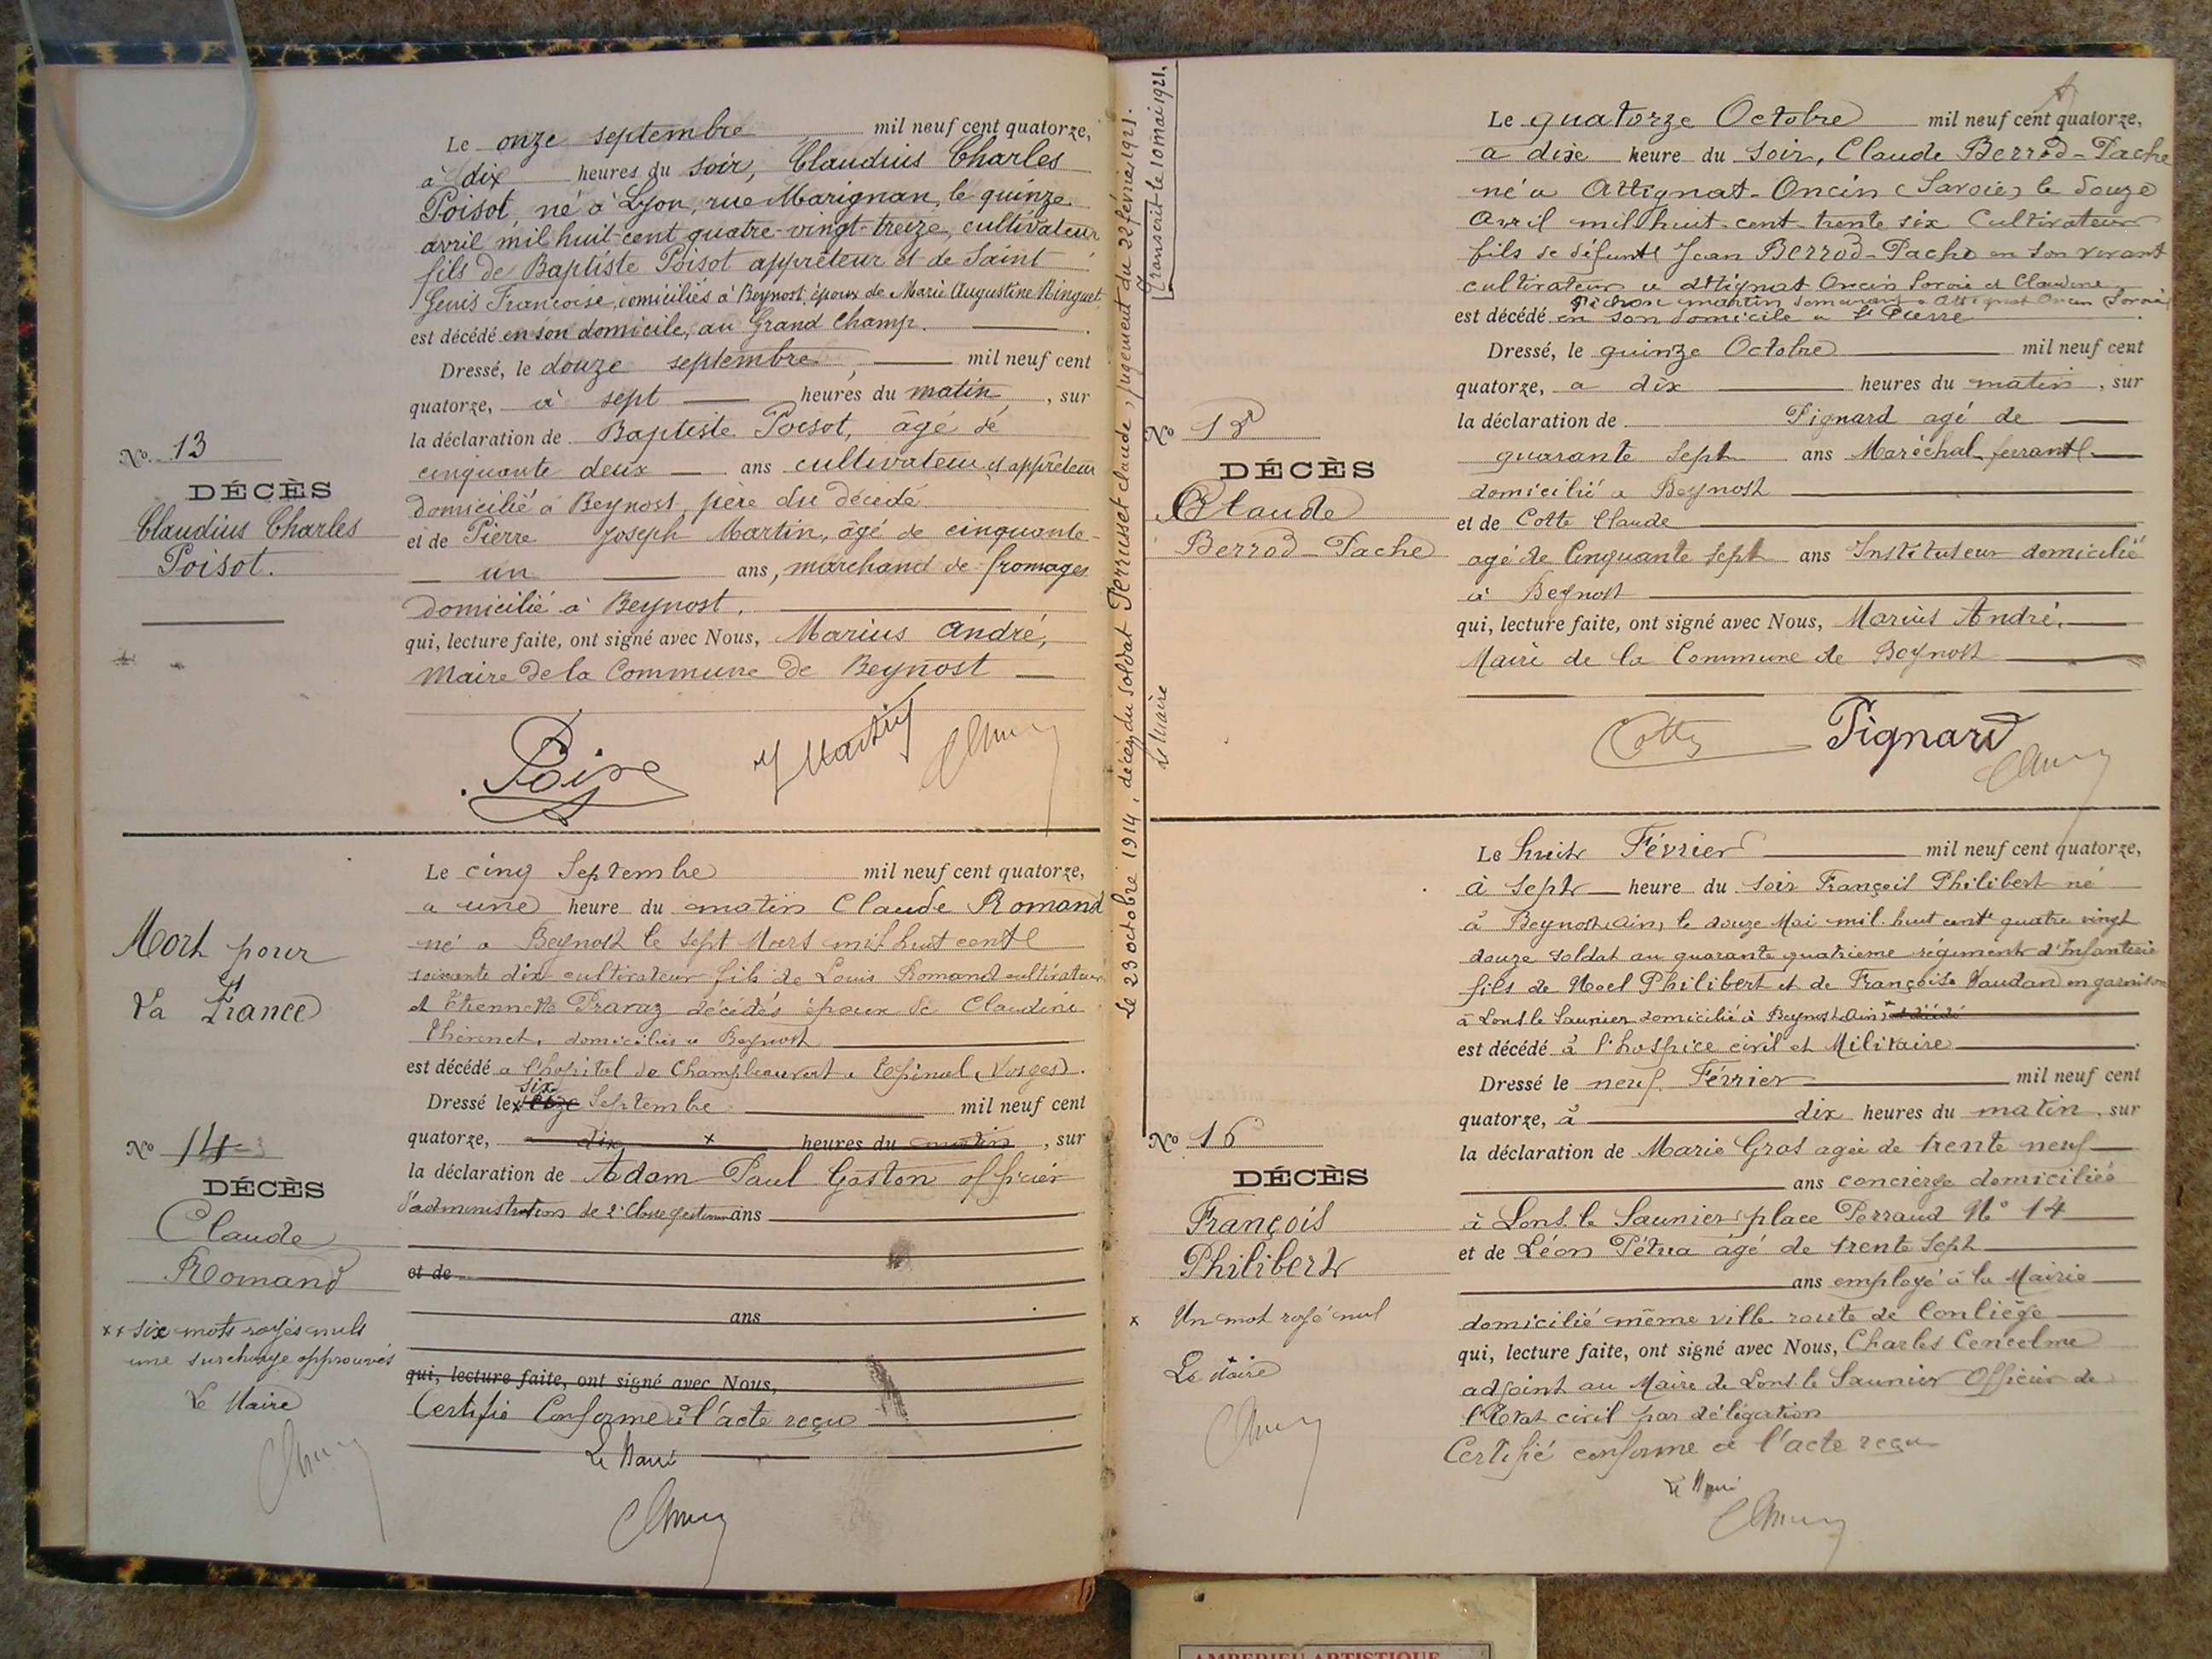 Le onze septembre mil neuf cent quatorze,
à dix heures du soir, Claudius Charles
Poisot, né à Lyon, rue Marignan, le quinze
avril mil huit cent quatre-vingt-treize, cultivateur
fils de Baptiste Poisot apprêteur et de Saint
Genis Francoise, domiciliés à Beynost, époux de Marie Augustine Ninguet
est décédé en son domicile, au Grand Champ.
Dressé, le douze septembre, mil neuf cent
quatorze, à sept heures du matin, sur
la déclaration de Baptiste Poisot, âgé de
cinquante deux ans cultivateur et apprêteur
domicilié à Beynost, père du décédé
et de Pierre Joseph Martin, âgé de cinquante-
un ans, marchand de fromages
domicilié à Beynost.
qui, lecture faite, ont signé avec Nous, Marius André,
Maire de la Commune de Beynost
No. 13
DÉCÈS
Claudius Charles
Poisot.
J Martin
Le cinq Septembre mil neuf cent quatorze,
a une heure du matin Claude Romand
né a Beynost le sept Mars mil huit cent
soixante dix cultivateur fils de Louis Romand cultivateur
et Etiennette Pravaz décédés époux de Claudine
Thérenet, domiciliés a Beynost
est décédé a l'hopital de Champbeauvert a Epinal (Vosges).
six
Dressé le Septembre mil neuf cent
quatorze, dix x heures du matin, sur
la déclaration de Adam Paul Gaston officier
d'administration de 2e Classe gestionn ans
et de
ans
qui, lecture faite, ont signé avec Nous,
Certifié Conforme à l'acte reçu
Le Maire
Mort pour
la France
No 14
DÉCÈS
Claude
Romand
xx six mots rayés nuls
une surcharge approuvés
Le Maire
Le 23 octobre 1914, décès du soldat Perrusset claude, jugement du 22 février 1921.
Transcrit le 10 mai 1921.
Le Maire
Le quatorze Octobre mil neuf cent quatorze,
a dixe heure du soir, Claude Berrod-Pache
né a Attignat-Oncin (Savoie) le douze
Avril mil huit-cent-trente six Cultivateur
fils de défunt Jean Berrod-Pache en son vivant
cultivateur a Attignat Oncin Savoie et Claudine
Pichon martin demeurant a Attignat Oncin Savoie
est décédé en son domicile a St Pierre
Dressé, le quinze Octobre mil neuf cent
quatorze, a dix heures du matin, sur
la déclaration de Pignard agé de
quarante sept ans Maréchal ferrant
domicilié a Beynost
et de Cotte Claude
agé de Cinquante sept ans Instituteur domicilié
à Beynost
qui, lecture faite, ont signé avec Nous, Marius André.
Maire de la Commune de Beynost
No
DÉCÈS
Claude
Berrod-Pache
Cotte Pignard
Le huit Février mil neuf cent quatorze,
à sept heure du soir François Philibert né
à Beynost (Ain), le douze Mai mil huit cent quatre vingt
douze soldat au quarante quatrieme régiment d'Infanterie
fils de Noel Philibert et de Françoise Vaudan en garnison
à Lons le Saunier domicilié à Beynost (Ain) x
est décédé à l'hospice civil et Militaire
Dressé le neuf Février mil neuf cent
quatorze, à dix heures du matin, sur
la déclaration de Marie Gros agée de trente neuf
ans concierge domiciliée
à Lons le Saunier place Perraud No 14
et de Léon Pétua âgé de trente sept
ans employé à la Mairie
domicilié même ville route de Conliège
qui, lecture faite, ont signé avec Nous, Charles Cencelme
adjoint au Maire de Lons le Saunier Officier de
l'Etat civil par délégation
Certifié conforme à l'acte reçu
Le Maire
No 16
DÉCÈS
François
Philibert
x Un mot rayé nul
Le Maire
AMBERIEU ARTISTIQUE